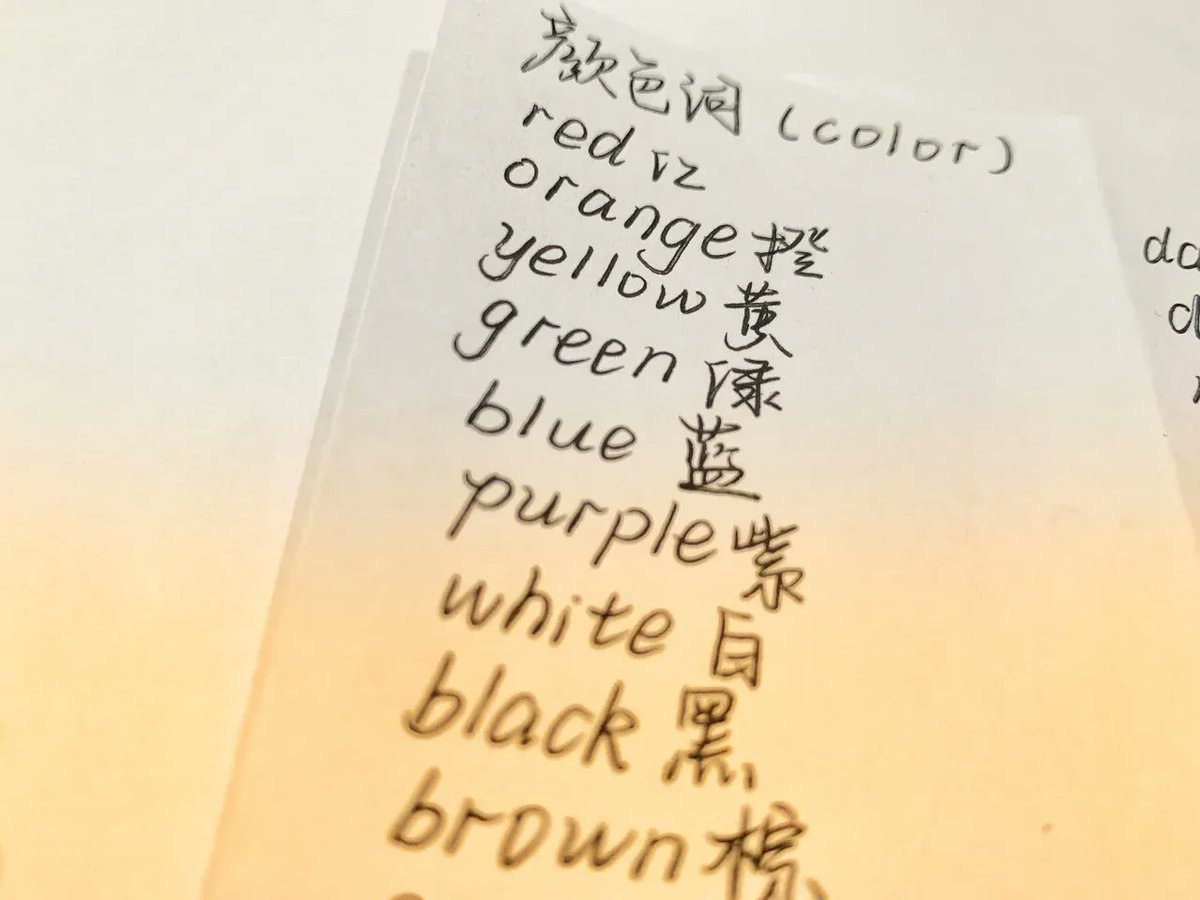 颜色词 (color)
red 红
orange 橙
yellow 黄
green 绿
blue 蓝
purple 紫
white 白
black 黑
brown 棕